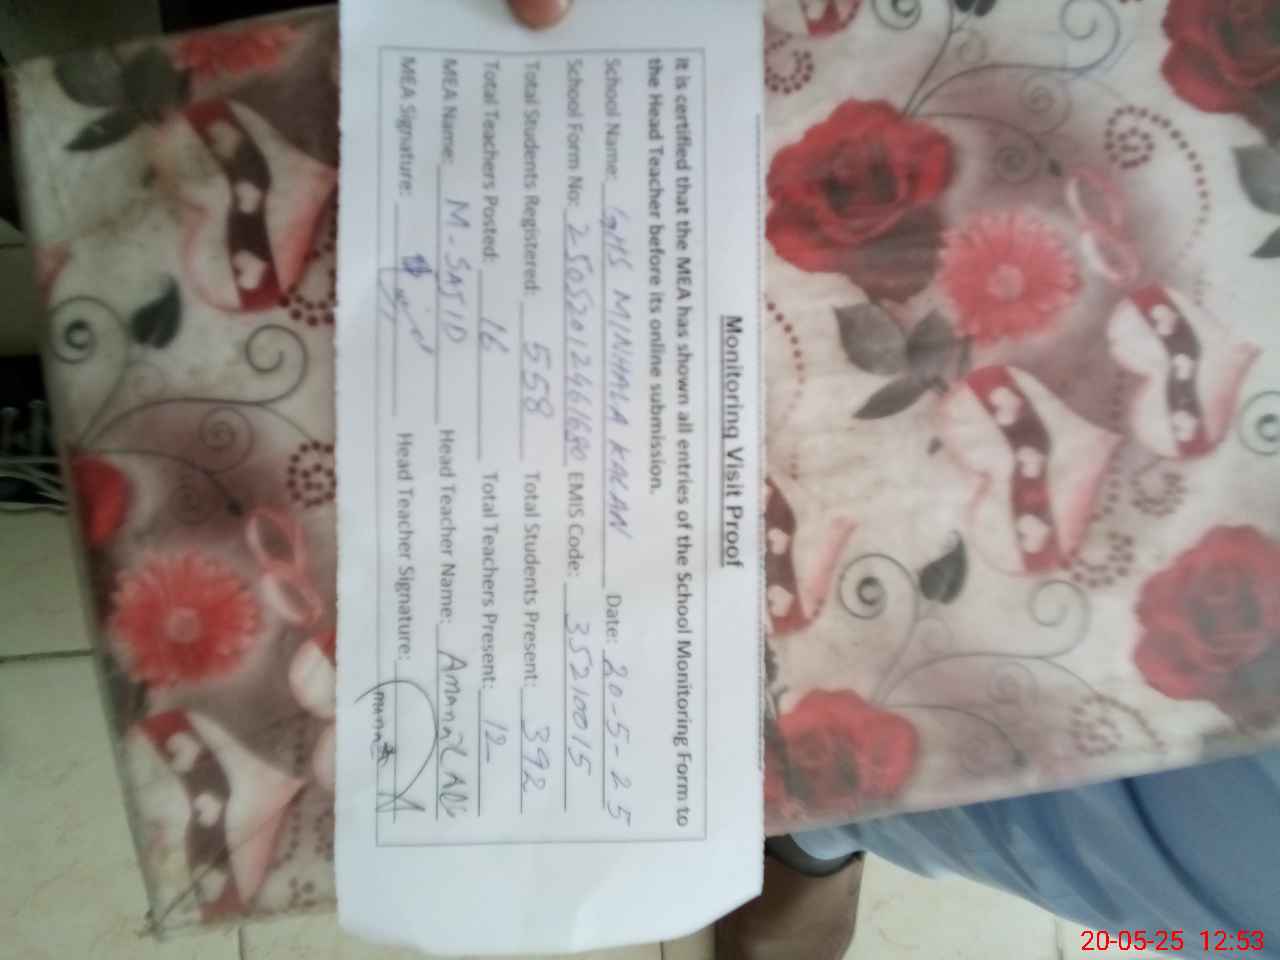 Monitoring Visit Proof
It is certified that the MEA has shown all entries of the School Monitoring Form to
the Head Teacher before its online submission.
School Name: GHS MINHALA KALAN Date: 20-5-25
School Form No: 25052012461680 EMIS Code: 35210015
Total Students Registered: 558 Total Students Present: 392
Total Teachers Posted: 16 Total Teachers Present: 12
MEA Name: M-SAJID Head Teacher Name: Amanat
MEA Signature: Head Teacher Signature:
20-05-25 12:53